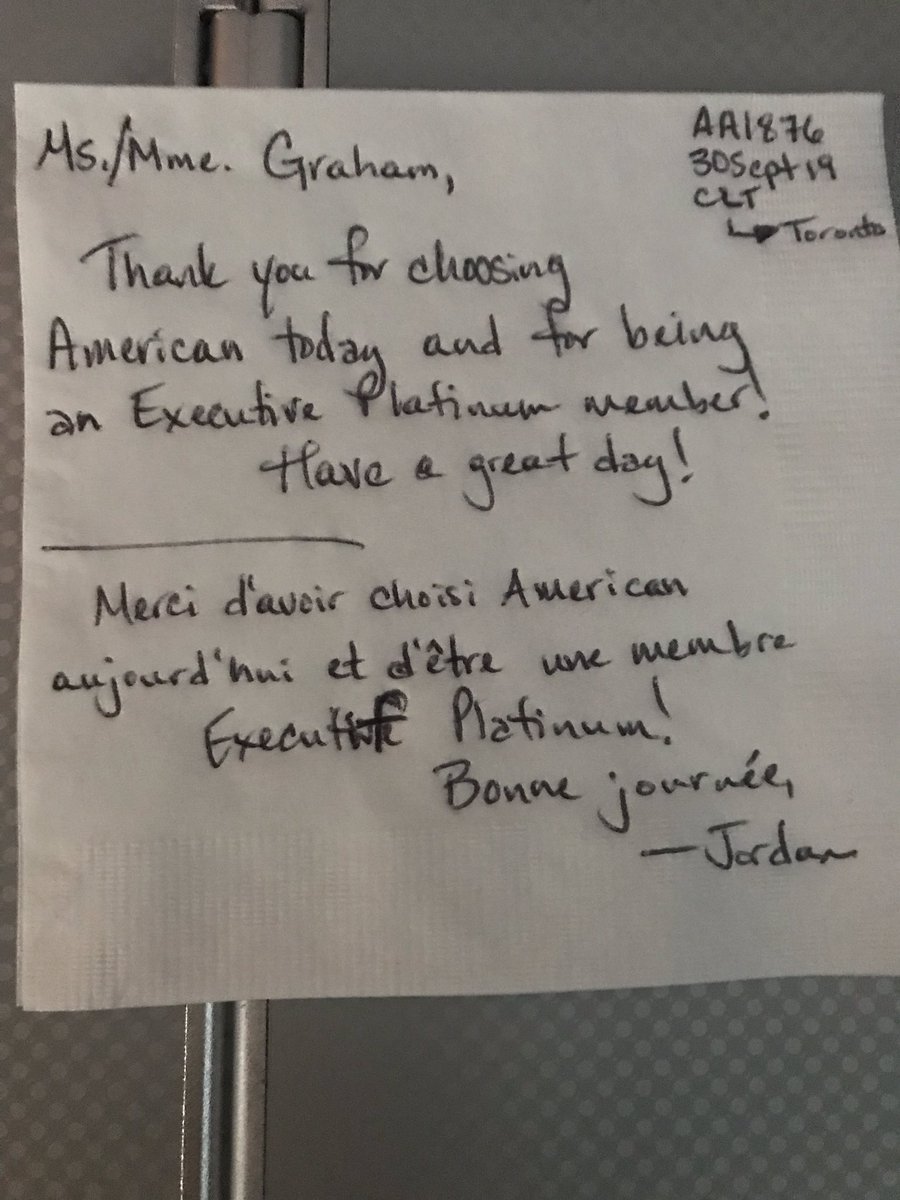 Ms./Mme. Graham,
AA1876
30Sept19
CLT
↳ Toronto
Thank you for choosing
American today and for being
an Executive Platinum member!
Have a great day!
Merci d'avoir choisi American
aujourd'hui et d'être une membre
Executive Platinum!
Bonne journée,
—Jordan